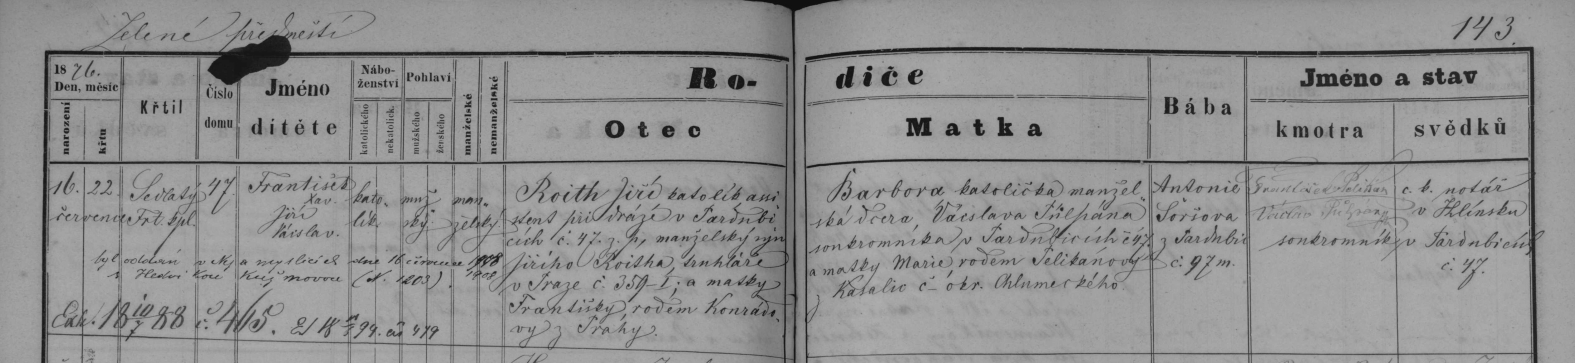 Zelené předměstí
143.
1876.
Den, měsíc
narození
křtu
Křtil
Číslo domu
Jméno dítěte
Náboženství
katolického
nekatolick.
Pohlaví
mužského
ženského
manželské
nemanželské
Rodiče
Otec
Matka
Bába
Jméno a stav
kmotra
svědků
16. 22.
července
Sedlatý
Frt. kpl.
47
František
Xav.
Jiří
Václav.
kato-
lík
muž
ský
man-
želský
Roith Jiří katolík assi
stent při dráze v Pardubi
cích č. 47. z. p. manželský syn
Jiřího Roitha truhláře
v Praze č. 359-I; a matky
Františky, rodem Konrádo-
vy z Prahy.
Barbora katolička manžel
ská dcera Václava Tulpána
soukromníka v Pardubicích č. 47.
a matky Marie rodem Pelikanovy
okr. Chlumeckého
Antonie
Šoršova
z Pardubic
č. 97 m.
František Pelikan
c. k. notář
v Hlinsku
Václav Tulpána
soukromník v Pardubicích
č. 47.
byl oddán
dne 16 července 1908
(N. 1203).
1908
Edh. 18 10/7 88 č. 465.
99. čís 479